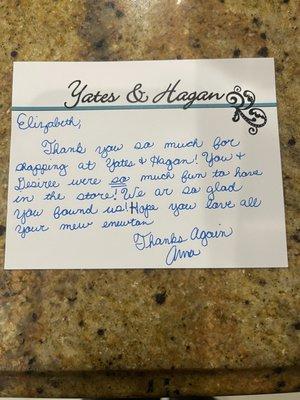 Yates & Hagan
Elizabeth,
Thank you so much for
shopping at Yates & Hagan! You &
Desiree were so much fun to have
in the store! We ar so glad
you found us! Hope you love all
your new
Thanks Again
Anna